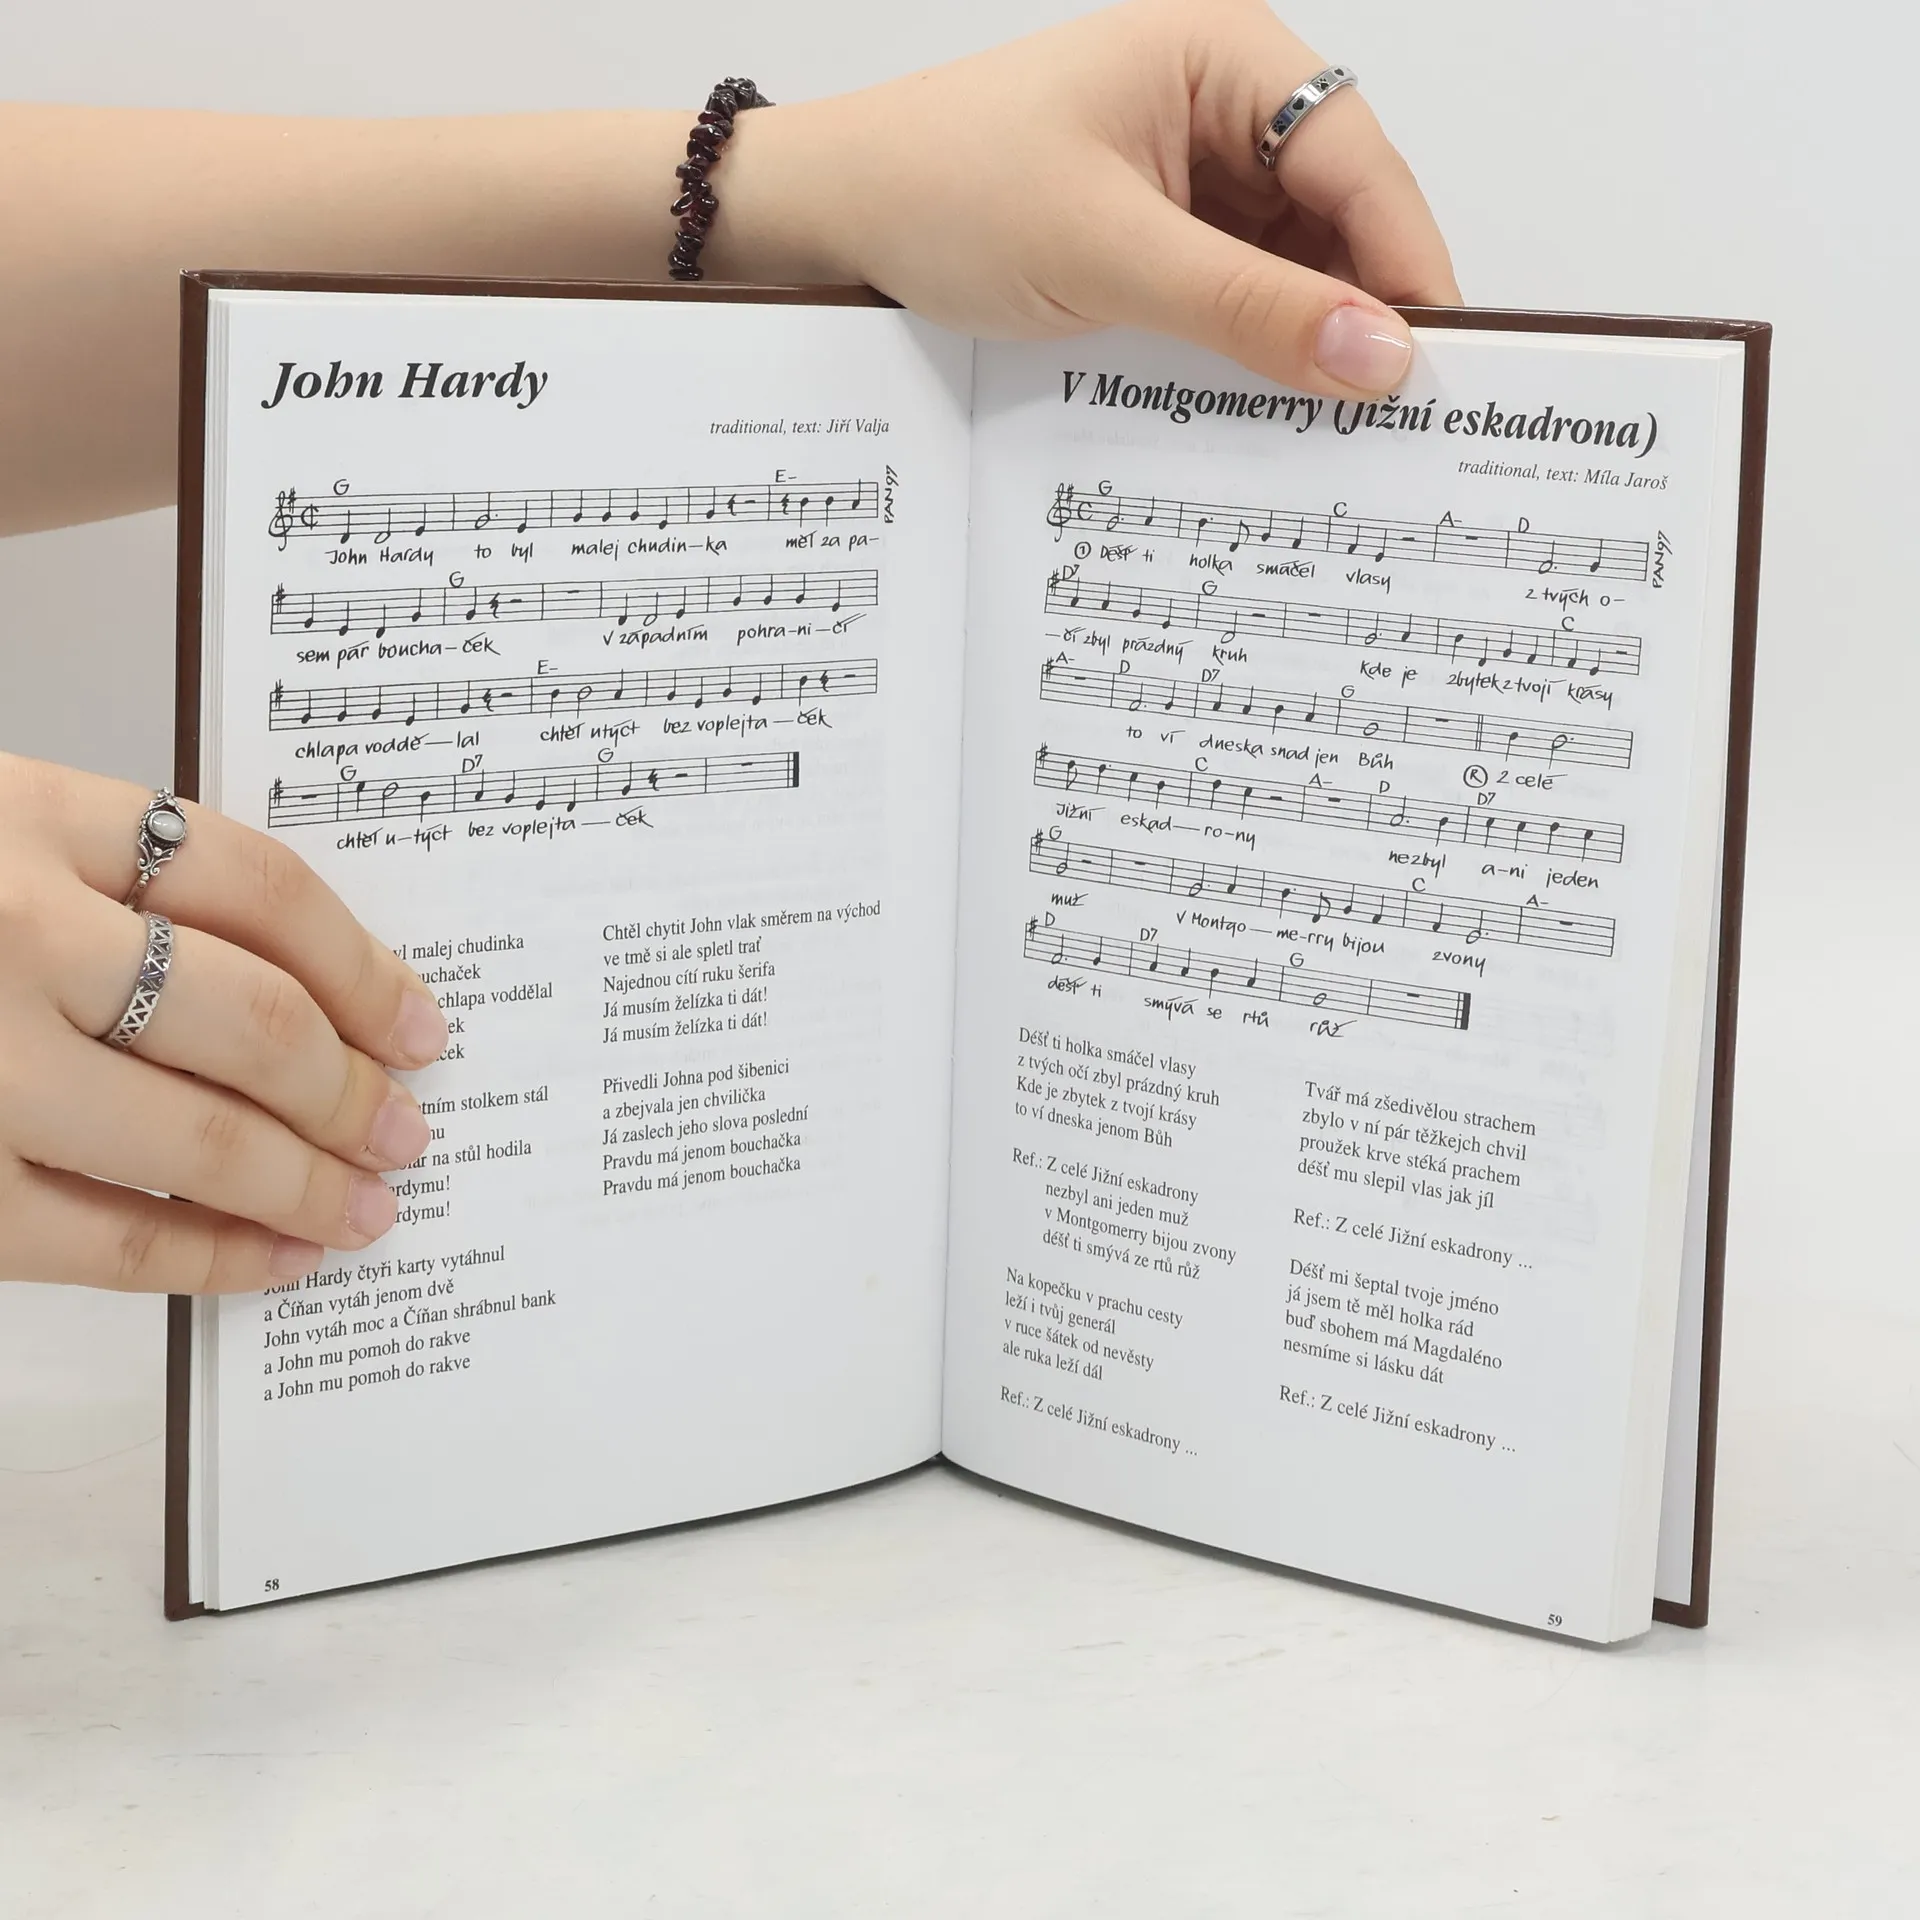 John Hardy
traditional, text: Jiří Valja
G E-
PAN97
John Hardy to byl malej chudin-ka měl za pa-
G
sem pár boucha-ček v západním pohra-ni-čí
E-
chlapa voddě-lal chtěl utýct bez voplejta-ček
G D7 G
chtěl u-týct bez voplejta-ček
malej chudinka
chlapa voddělal
stolkem stál
na stůl hodila
John Hardy čtyři karty vytáhnul
a Číňan vytáh jenom dvě
John vytáh moc a Číňan shrábnul bank
a John mu pomoh do rakve
a John mu pomoh do rakve
Chtěl chytit John vlak směrem na východ
ve tmě si ale spletl trať
Najednou cítí ruku šerifa
Já musím želízka ti dát!
Já musím želízka ti dát!
Přivedli Johna pod šibenici
a zbejvala jen chvilička
Já zaslech jeho slova poslední
Pravdu má jenom bouchačka
Pravdu má jenom bouchačka
58
V Montgomerry (Jižní eskadrona)
traditional, text: Míla Jaroš
G C A- D
PAN97
① Déšť ti holka smáčel vlasy z tvých o-
D7 G C
-čí zbyl prázdný kruh Kde je zbytek z tvojí krásy
A- D D7 G
to ví dneska snad jen Bůh Ⓡ Z celé
C A- D D7
Jižní eskad-ro-ny nezbyl a-ni jeden
G C A-
muž V Montgo-me-rry bijou zvony
D D7 G
déšť ti smývá se rtů růž
Déšť ti holka smáčel vlasy
z tvých očí zbyl prázdný kruh
Kde je zbytek z tvojí krásy
to ví dneska jenom Bůh
Ref.: Z celé Jižní eskadrony
nezbyl ani jeden muž
v Montgomerry bijou zvony
déšť ti smývá ze rtů růž
Na kopečku v prachu cesty
leží i tvůj generál
v ruce šátek od nevěsty
ale ruka leží dál
Ref.: Z celé Jižní eskadrony ...
Tvář má zšedivělou strachem
zbylo v ní pár těžkejch chvil
proužek krve stéká prachem
déšť mu slepil vlas jak jíl
Ref.: Z celé Jižní eskadrony ...
Déšť mi šeptal tvoje jméno
já jsem tě měl holka rád
buď sbohem má Magdaléno
nesmíme si lásku dát
Ref.: Z celé Jižní eskadrony ...
59